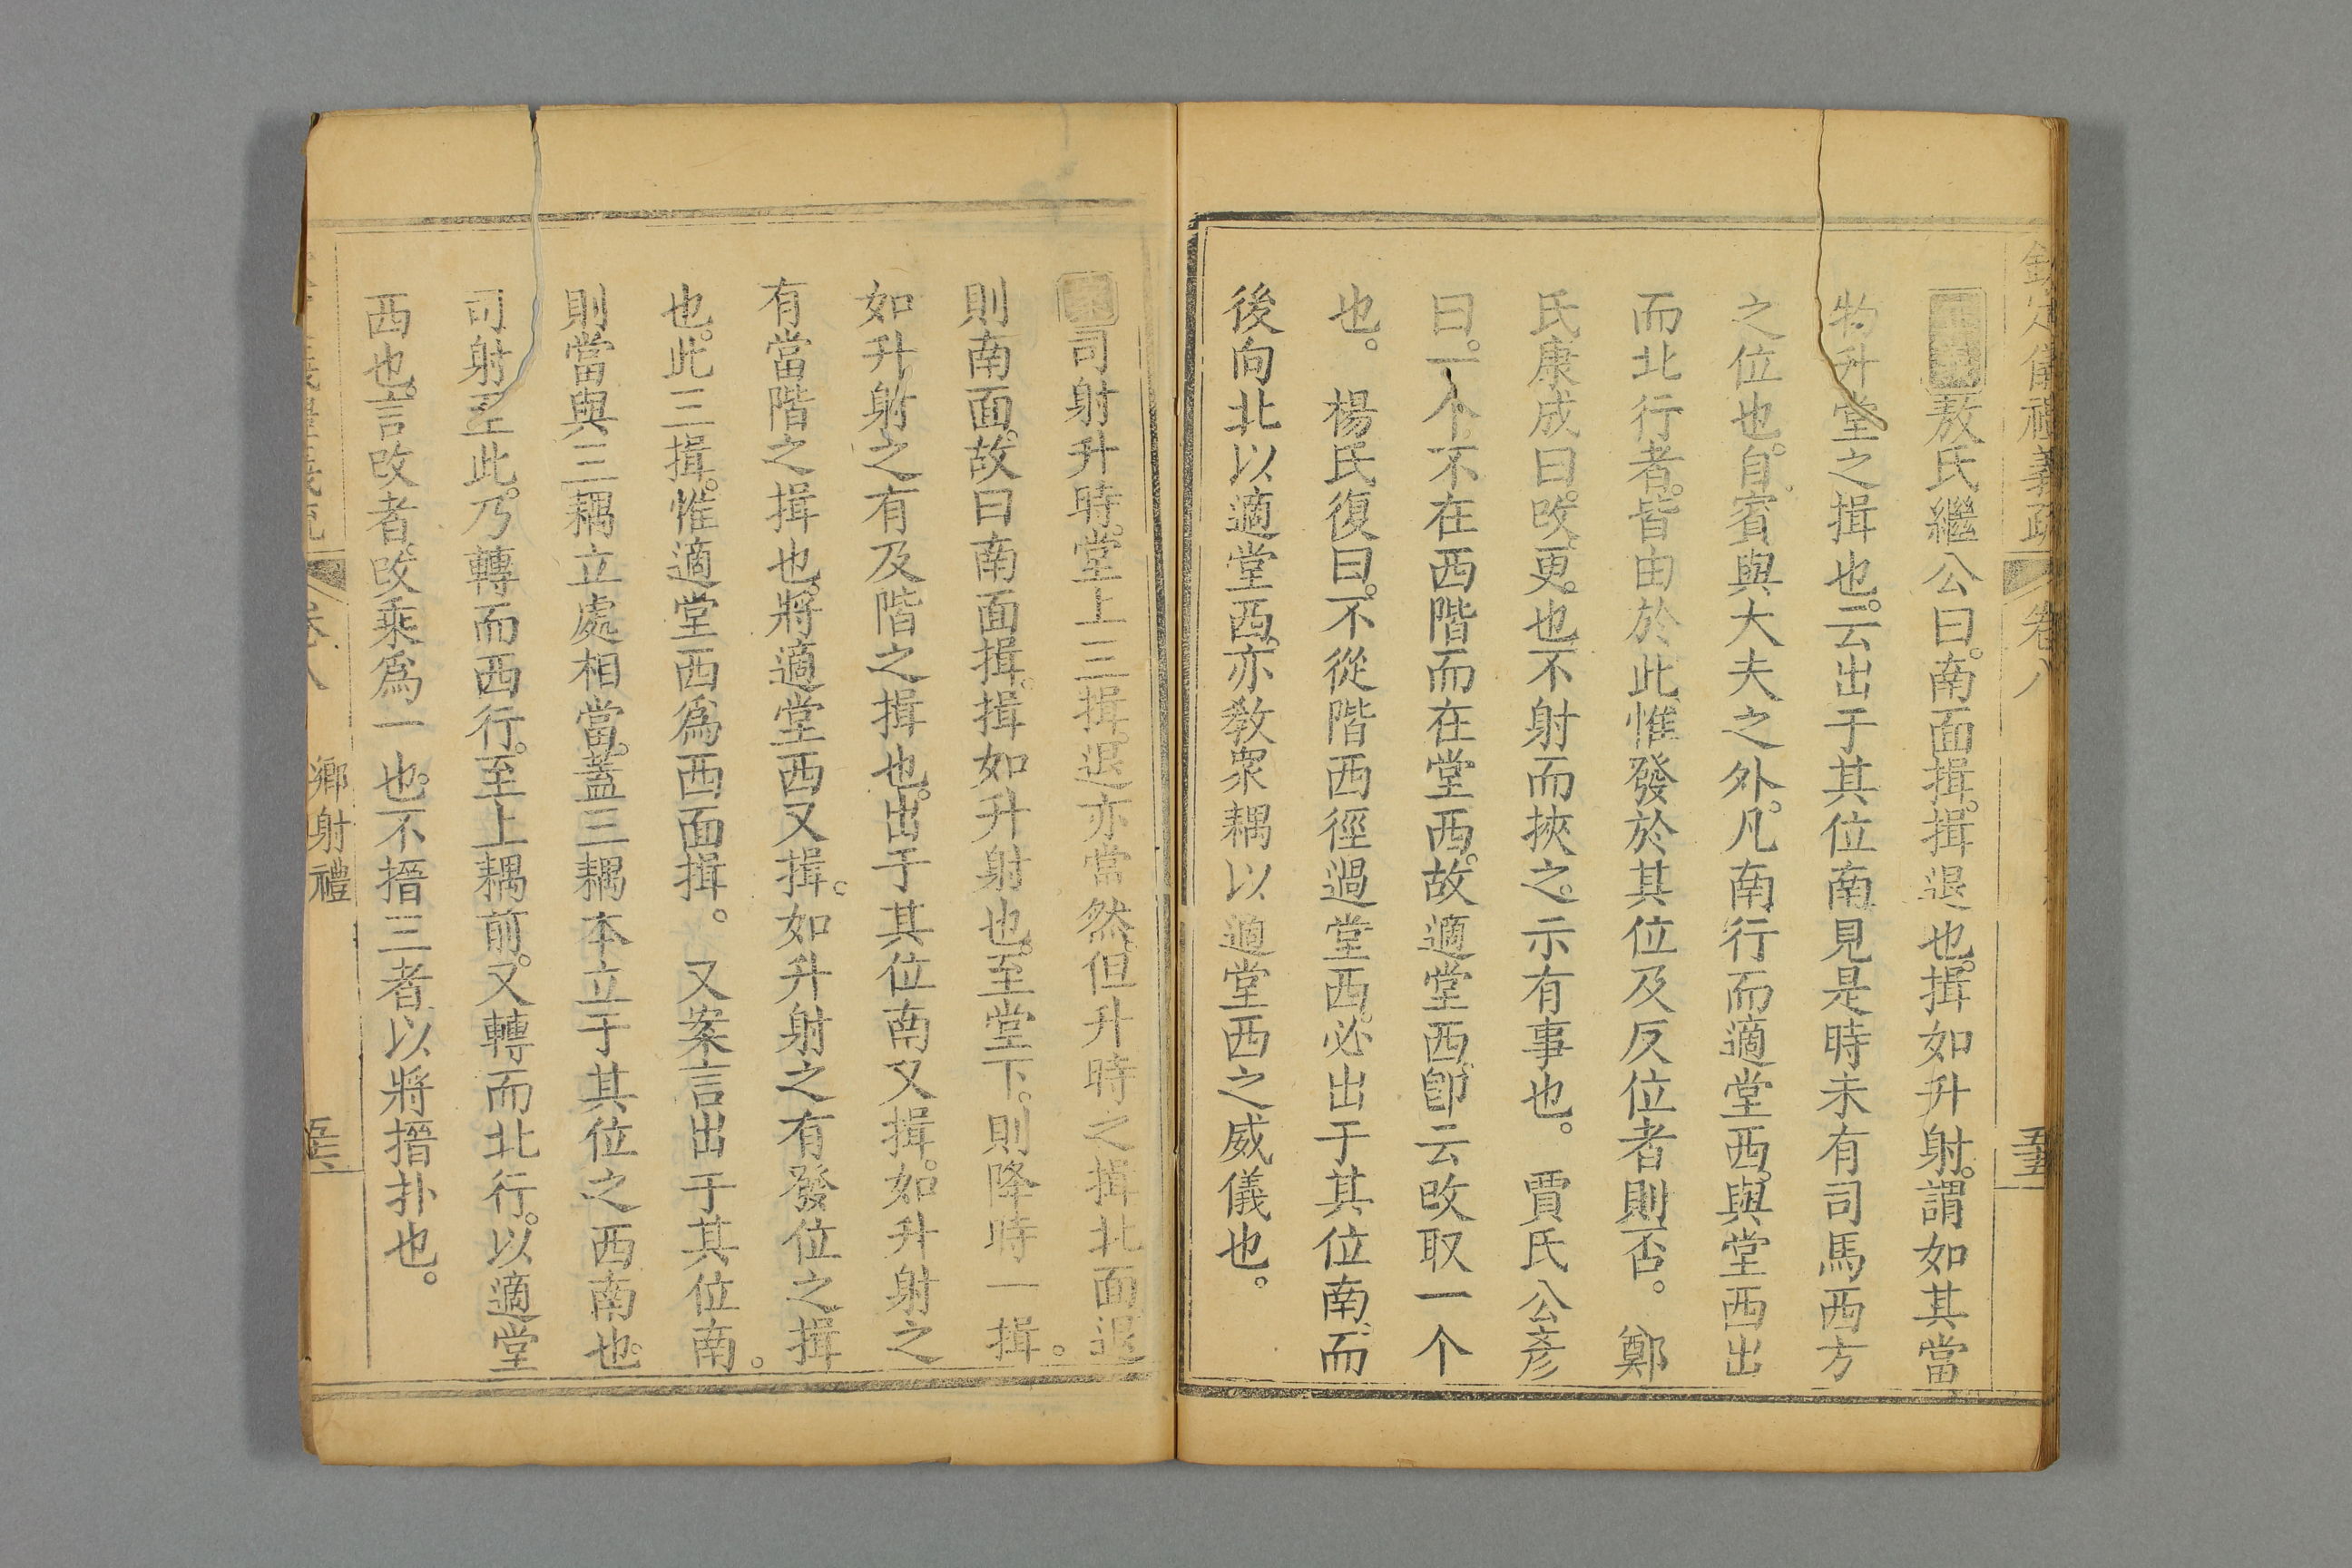 欽定儀禮義疏 卷八 五
敖氏繼公曰。南面揖。揖退也。揖如升射。謂如其當
物升堂之揖也。云出于其位南見是時未有司馬西方
之位也。自賓與大夫之外。凡南行而適堂西。與堂西出
而北行者。皆由於此。惟發於其位及反位者則否。 鄭
氏康成曰。改。更也。不射而挾之。示有事也。 賈氏公彥
曰。一个不在西階而在堂西。故適堂西。卽云改取一个
也。 楊氏復曰。不從階西徑過堂西。必出于其位南。而
後向北以適堂西。亦教衆耦以適堂西之威儀也。
司射升時。堂上三揖。退亦當然。但升時之揖北面退
則南面。故曰南面揖。揖如升射也。至堂下。則降時一揖。
如升射之有及階之揖也。出于其位南又揖。如升射之
有當階之揖也。將適堂西又揖。如升射之有發位之揖
也。此三揖。惟適堂西爲西面揖。 又案言出于其位南。
則當與三耦立處相當。蓋三耦本立于其位之西南也。
司射至此。乃轉而西行。至上耦前。又轉而北行。以適堂
西也。言改者。改乘爲一也。不搢三者以將搢扑也。
卷八 鄉射禮